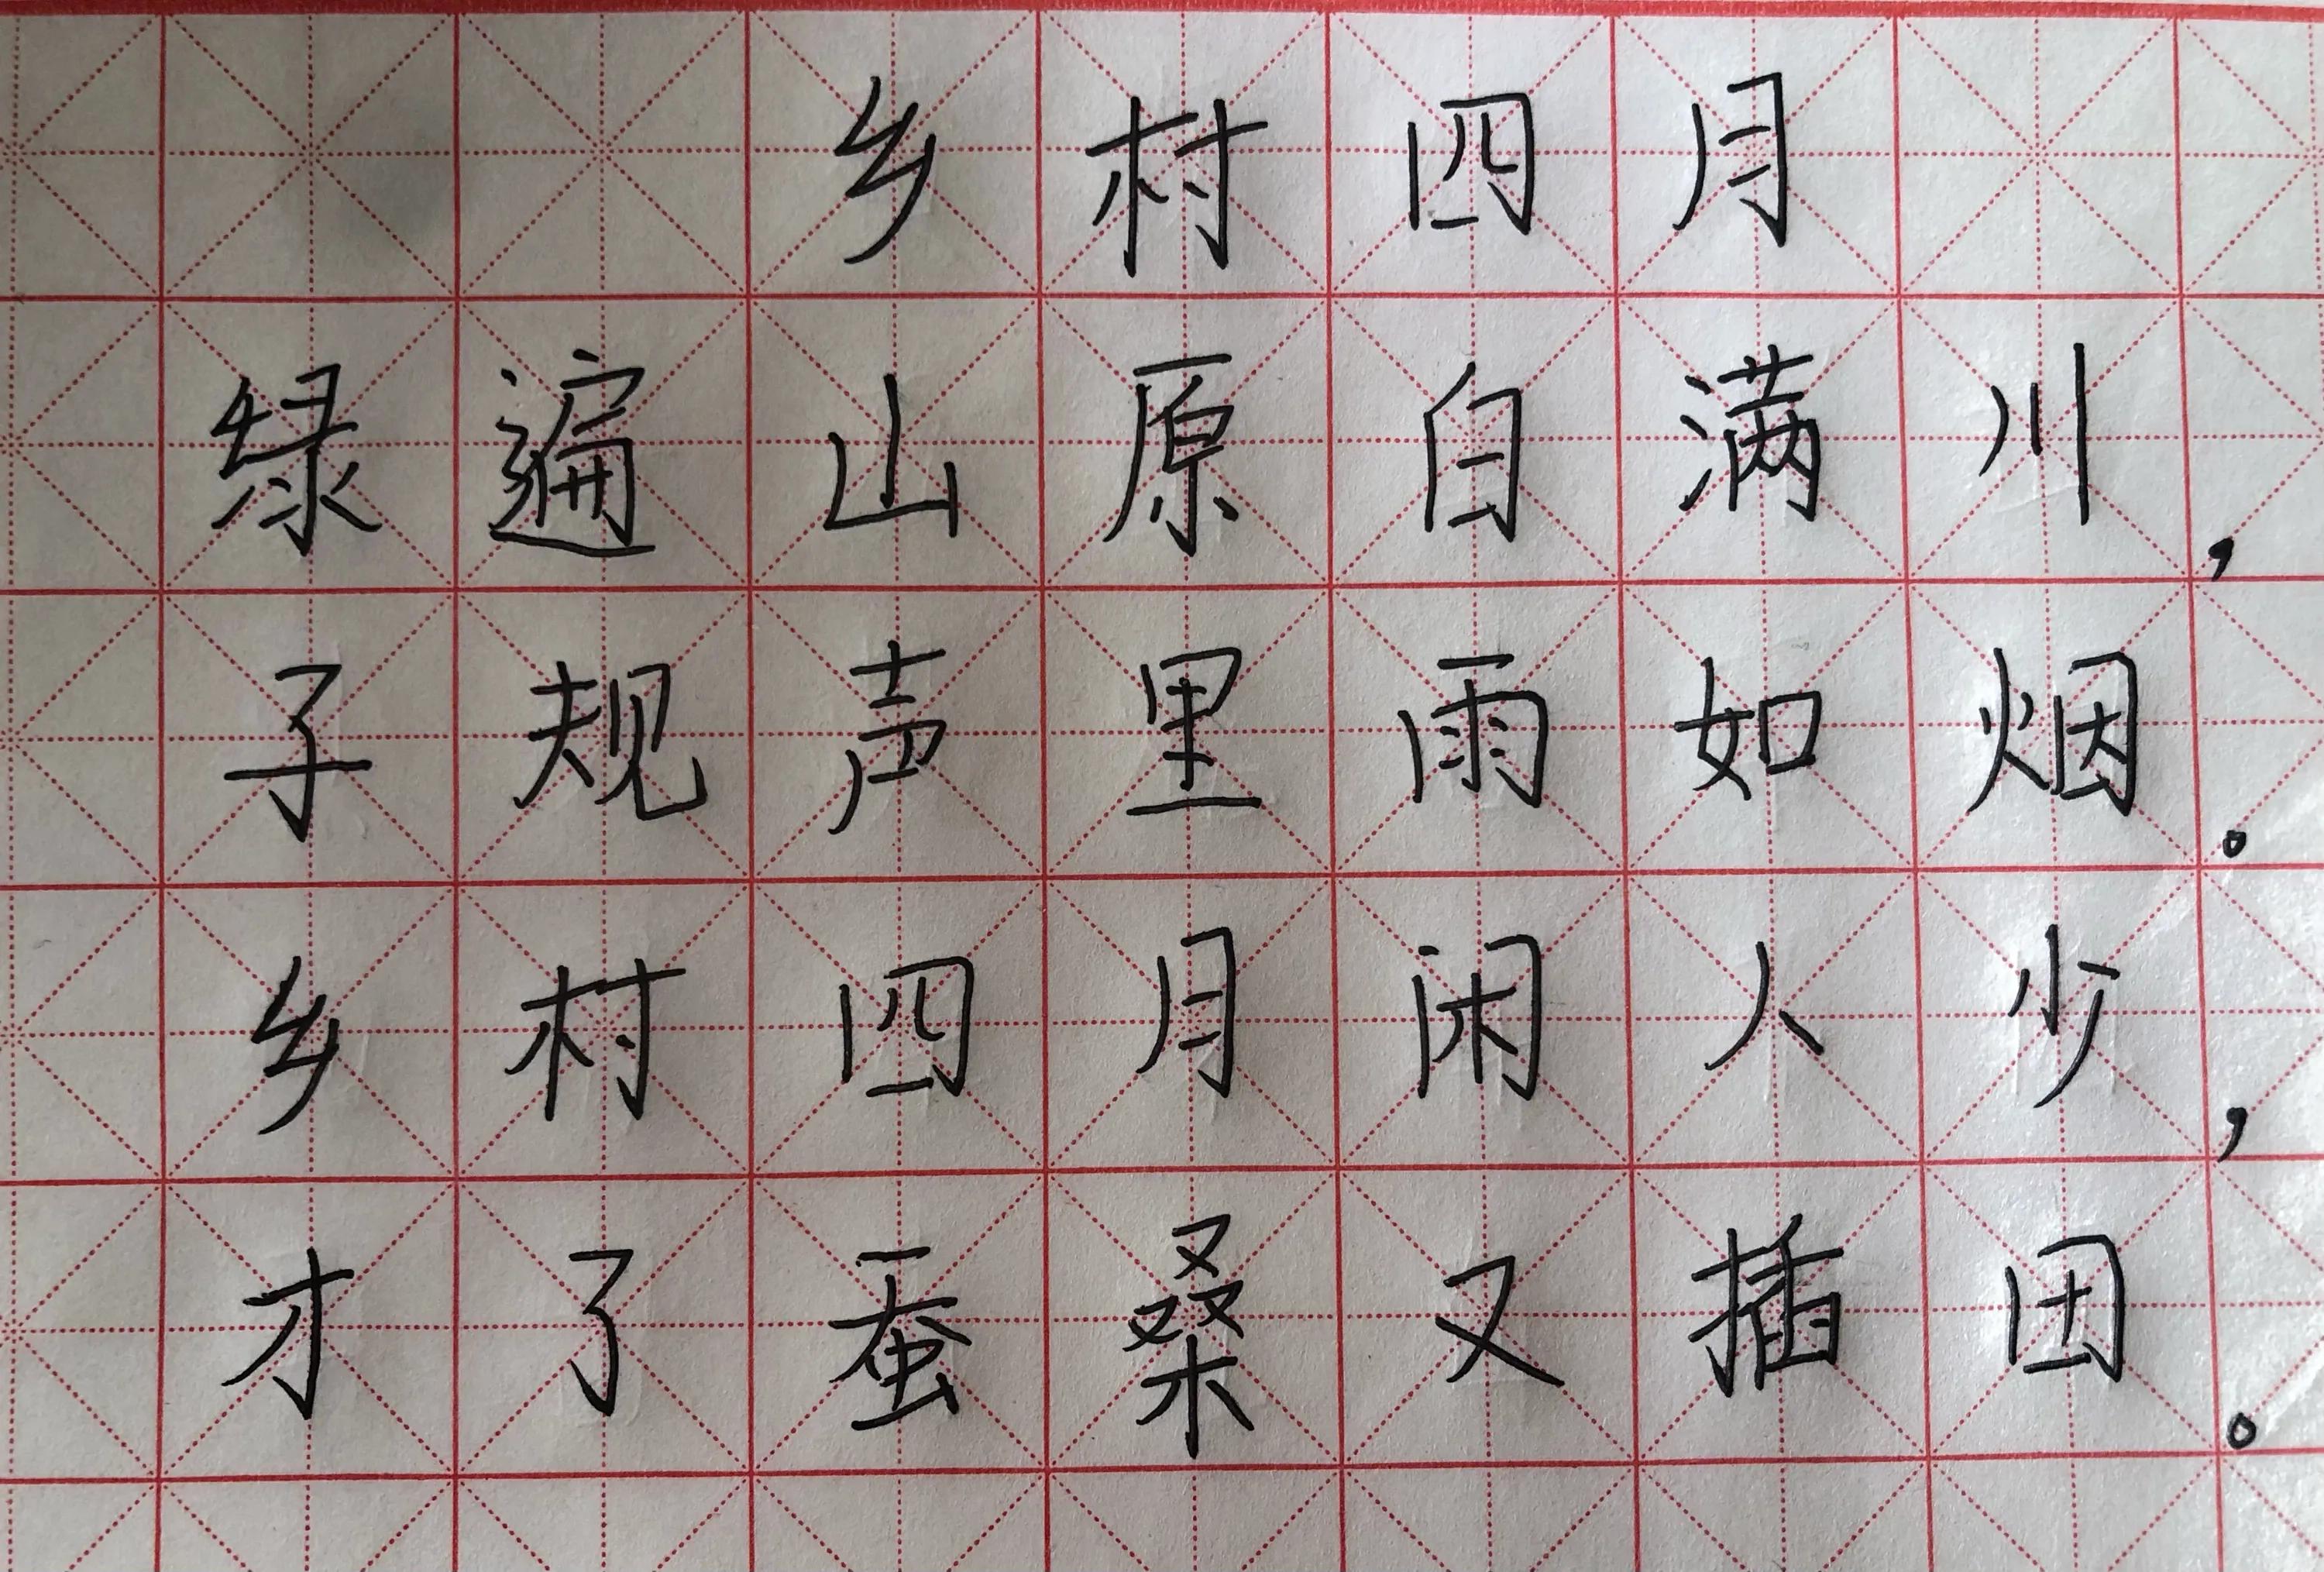 乡村四月
绿遍山原白满川，
子规声里雨如烟。
乡村四月闲人少，
才了蚕桑又插田。